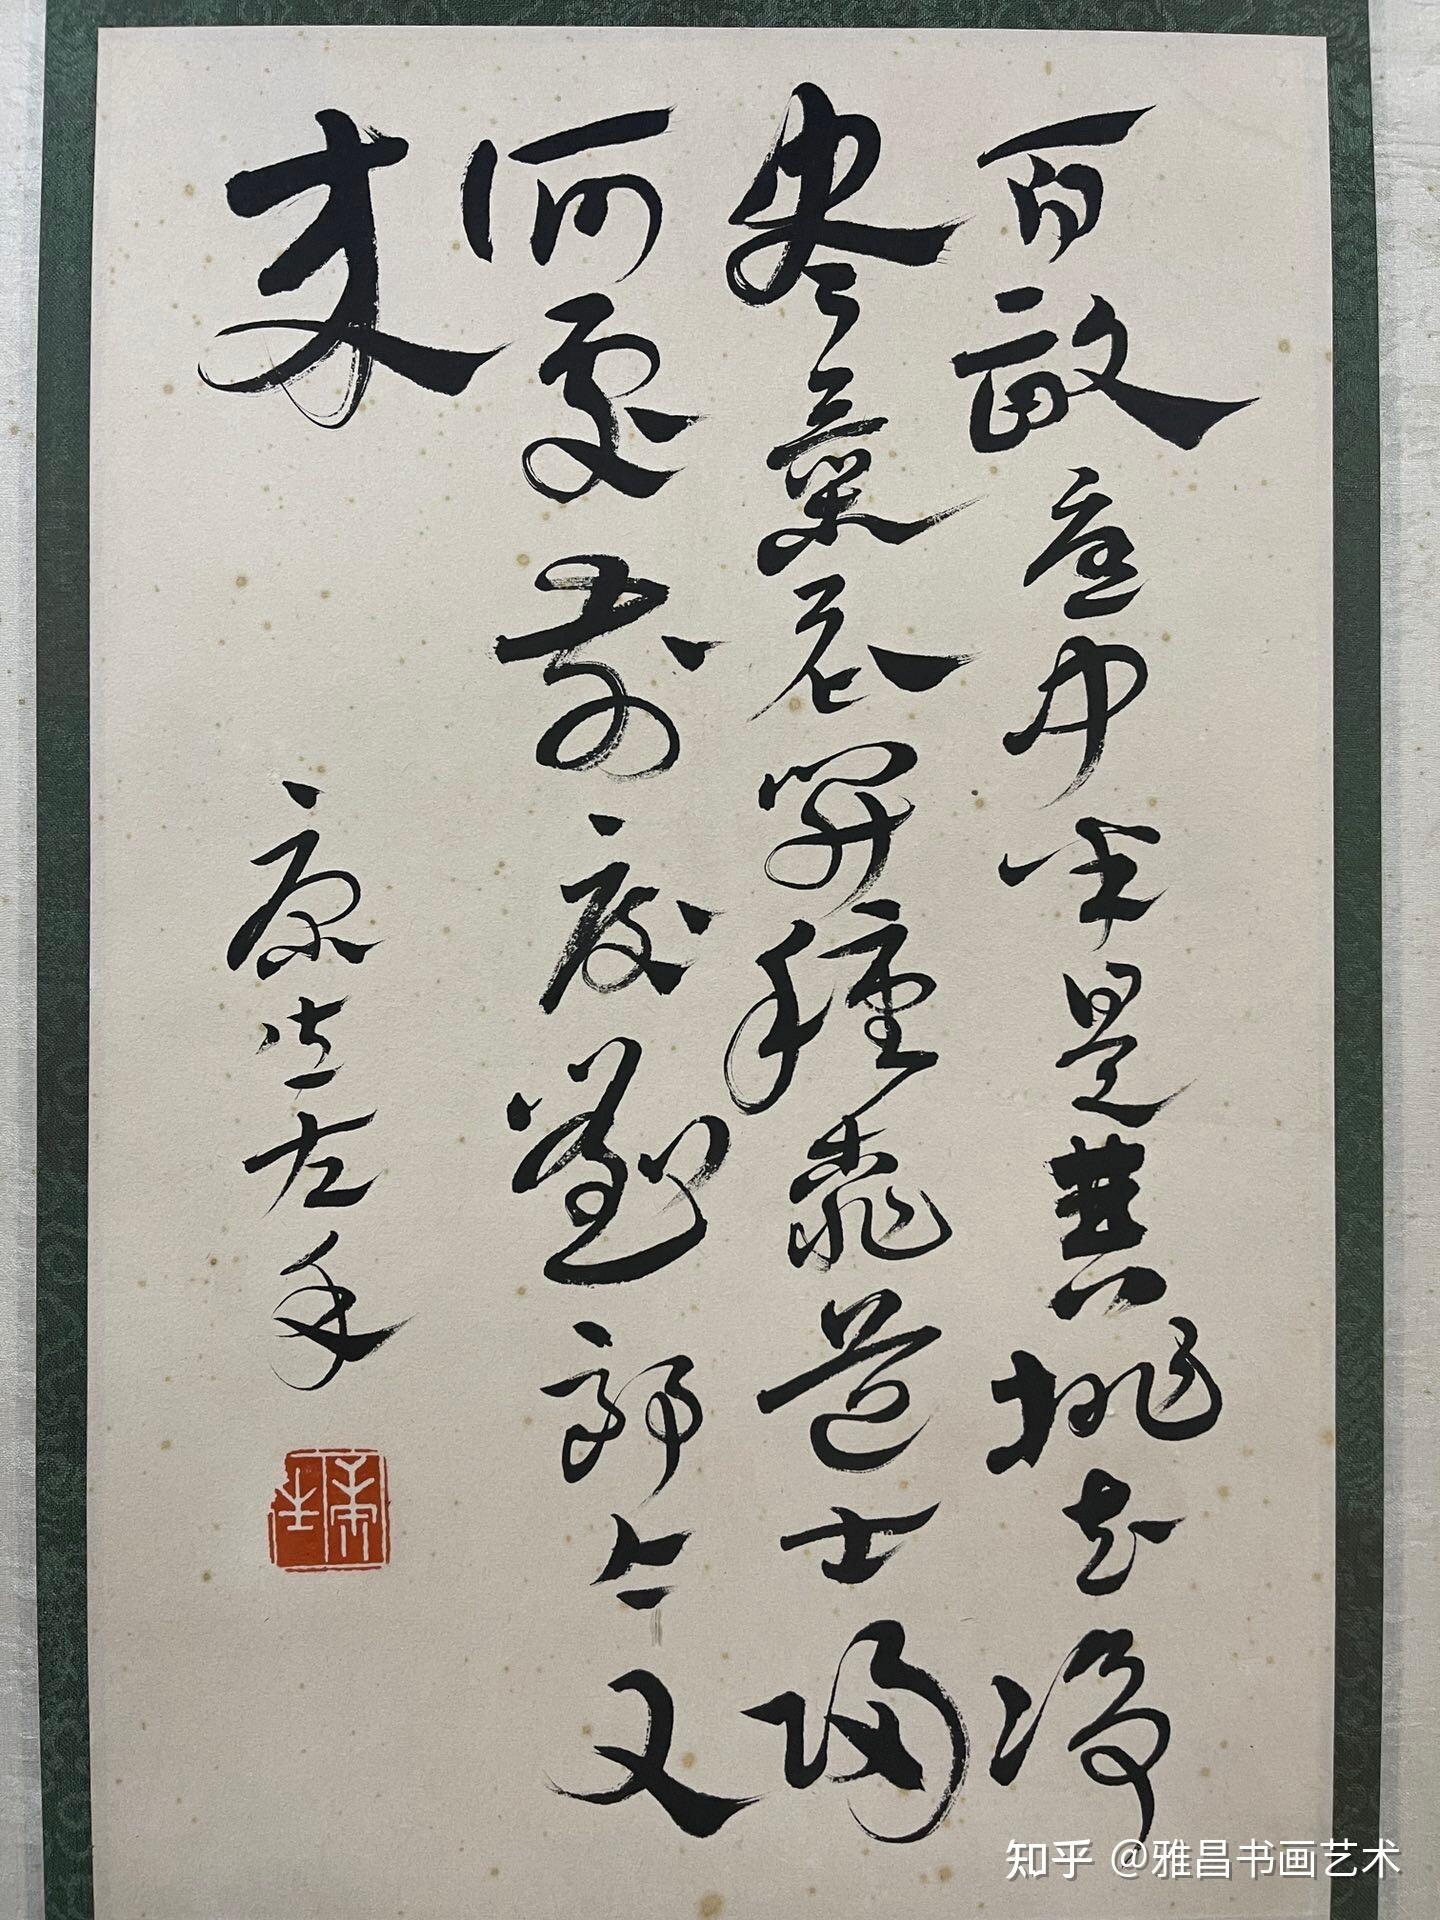 百畝庭中半是苔桃花淨
盡菜花開種桃道士歸
何處前度劉郎今又
来
康生左手
康生
知乎 @雅昌书画艺术